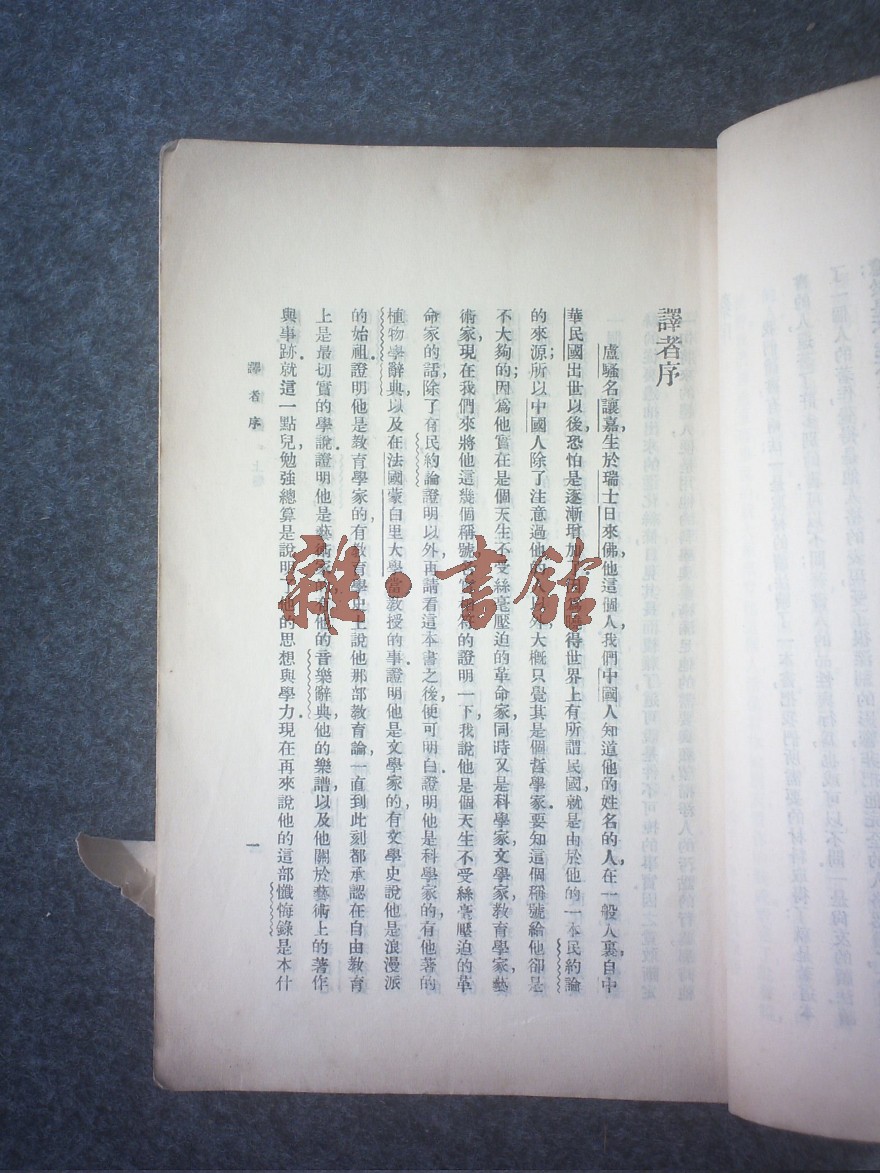 譯者序
盧騷名讓嘉，生於瑞士日來佛，他這個人，我們中國人知道他的姓名的人，在一般人裏，自中
華民國出世以後，恐怕是逐漸增加，因爲曉得世界上有所謂民國，就是由於他的一本民約論
的來源；所以中國人除了注意過他的人以外，大概只覺其是個哲學家。要知這個稱號給他卻是
不大夠的；因爲他實在是個天生不受絲毫壓迫的革命家，同時又是科學家，文學家，教育學家，藝
術家，現在我們來將他這幾個稱號，名實相符的證明一下，我說他是個天生不受絲毫壓迫的革
命家的話，除了有民約論證明以外，再請看這本書之後，便可明白。證明他是科學家的，有他著的
植物學辭典，以及在法國蒙白里大學當教授的事。證明他是文學家的，有文學史說他是浪漫派
的始祖。證明他是教育學家的，有教育學史上說他那部教育論，一直到此刻都承認在自由教育
上是最切實的學說。證明他是藝術家的，有他的音樂辭典，他的樂譜，以及他關於藝術上的著作
與事跡。就這一點兒，勉強總算是說明了他的思想與學力，現在再來說他的這部懺悔錄是本什
譯者序
一
雜·書館